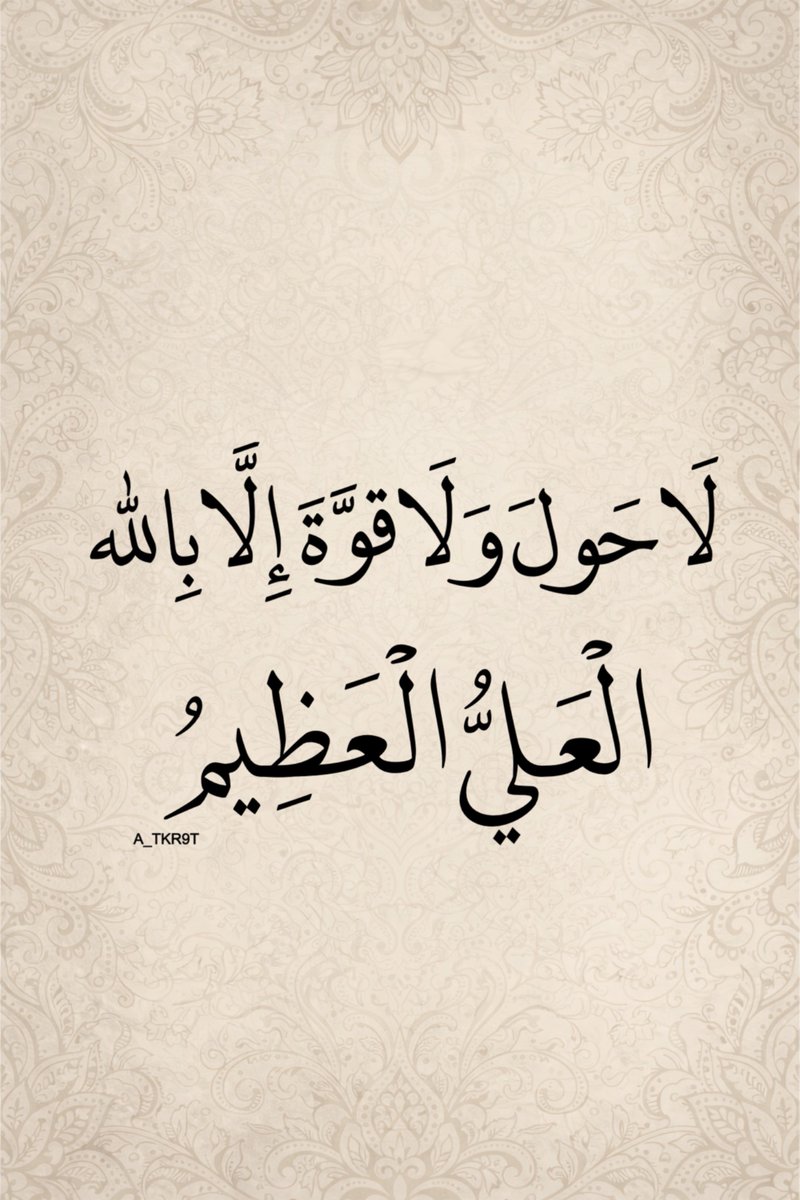 لَا حَولَ وَلَا قوَّةَ إِلَّا بِالله
الْعَليُّ الْعَظِيمُ
A_TKR9T